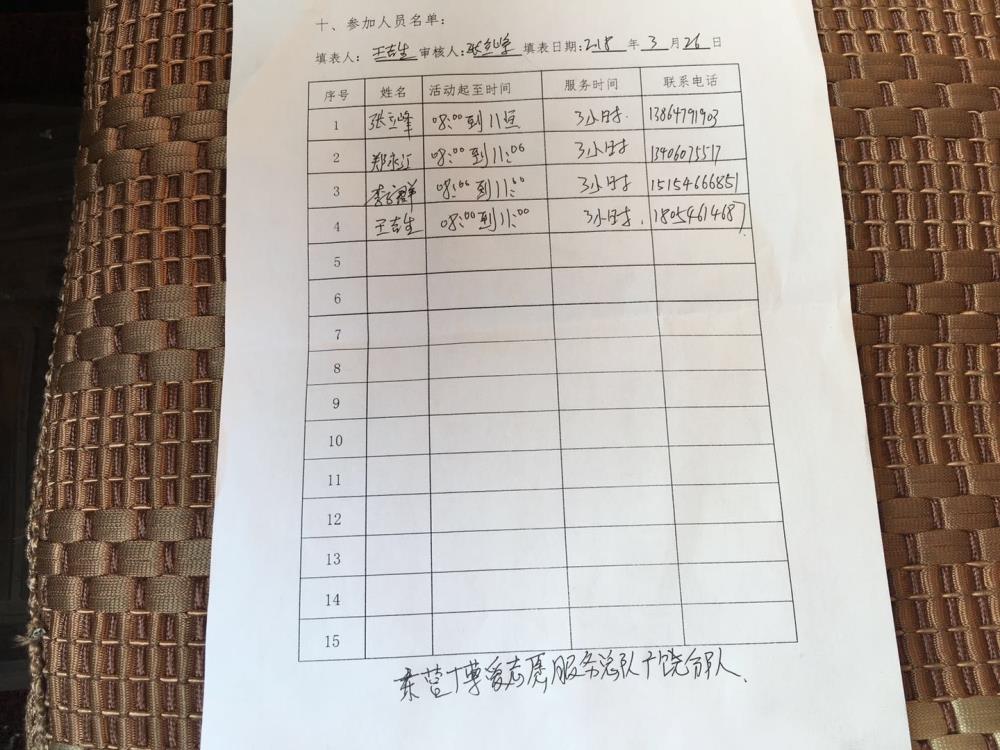 十、参加人员名单：
填表人：王吉生 审核人：张立峰 填表日期：2018 年 3 月 26 日
序号 姓名 活动起至时间 服务时间 联系电话
1 张立峰 08:00到11:00 3小时. 13864791903
2 郑永江 08:00到11:00 3小时 13406075517
3 08:00到11:00 3小时 15154666851
4 王吉生 08:00到11:00 3小时. 18054614687
5
6
7
8
9
10
11
12
13
14
15
东营博爱志愿服务总队广饶分队.